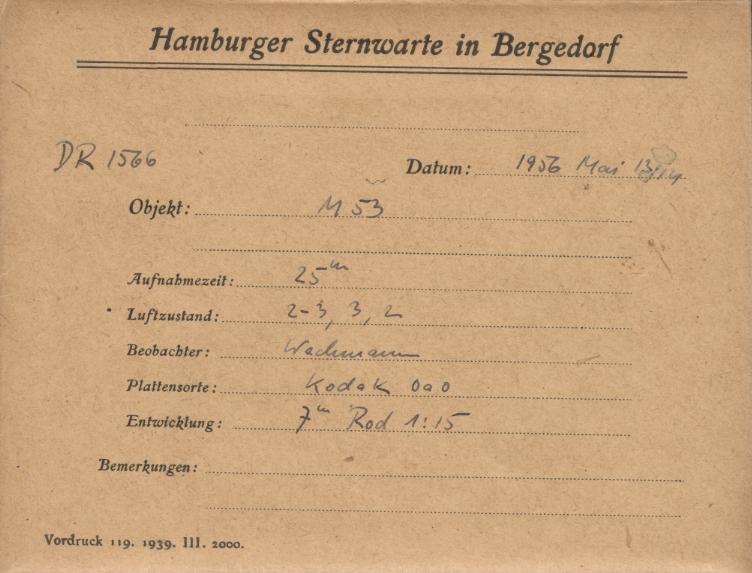 Hamburger Sternwarte in Bergedorf
DR 1566
Datum: 1956 Mai 13/14
Objekt: M 53
Aufnahmezeit: 25ᵐ
Luftzustand: 2-3, 3, 2
Beobachter: Wachmann
Plattensorte: Kodak 0a0
Entwicklung: 7ᵐ Rod 1:15
Bemerkungen:
Vordruck 119. 1939. III. 2000.